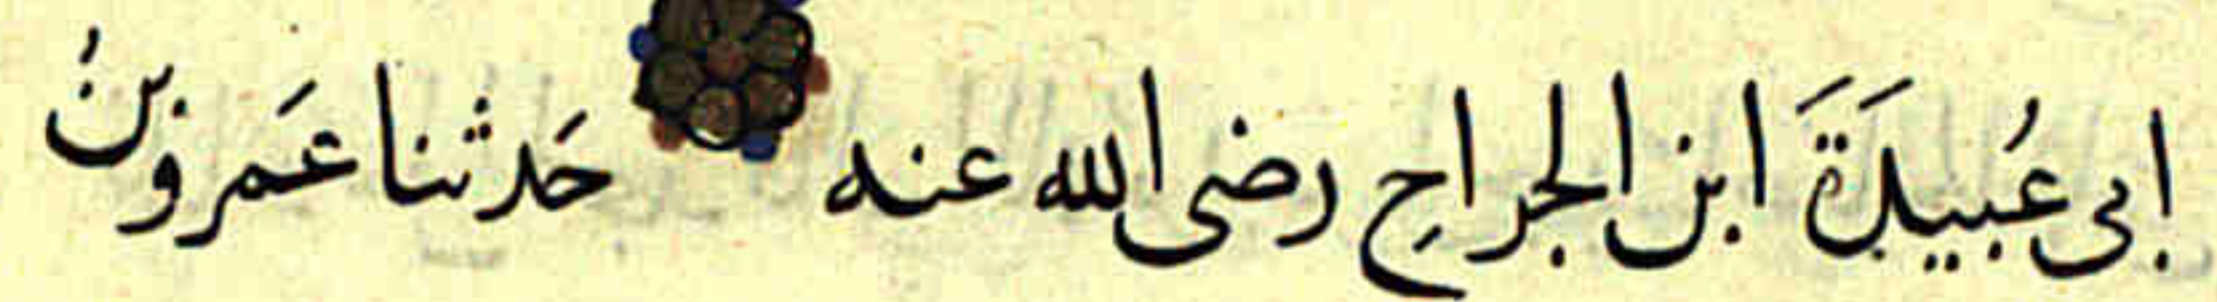 ابى عُبيدَةَ ابن الجراحِ رضى الله عنه حَدثنا عَمرو بنُ